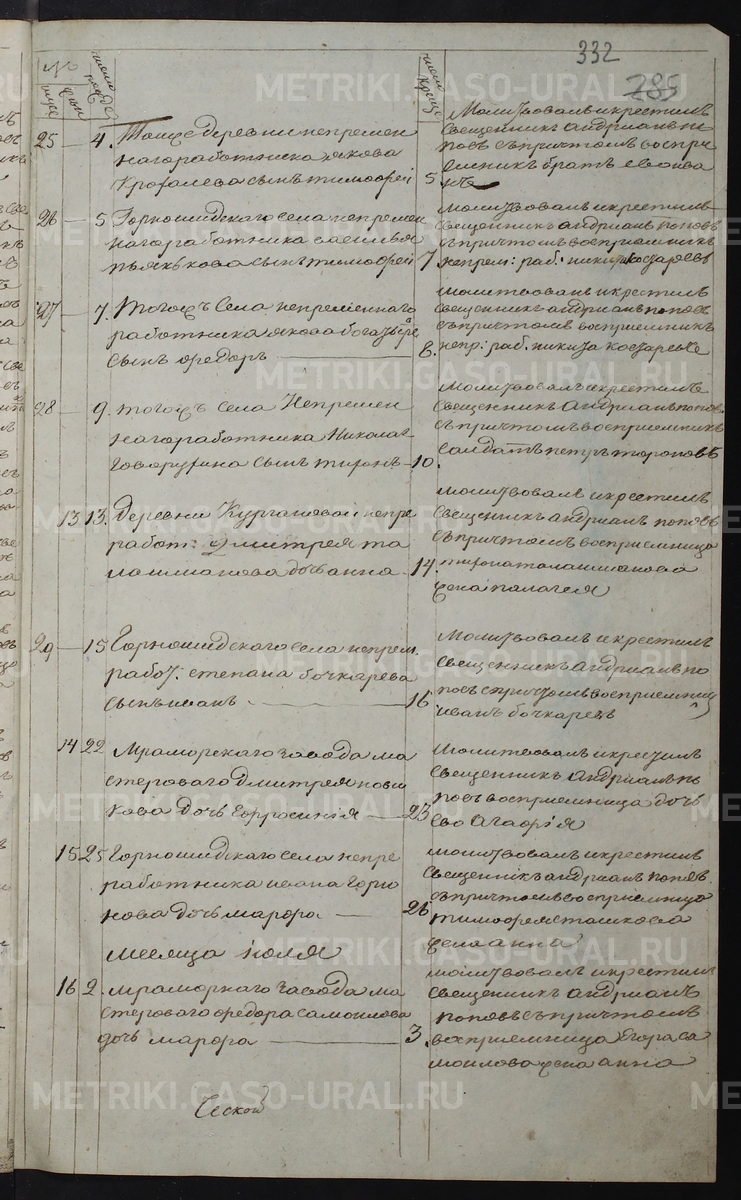 332
285
число рожде
число креще
муж
жен
25 — 4. Тойже деревни непремен
наго работника якова
сынъ тимофей
5
Молитвовалъ и крестилъ
священникъ андрианъ по
повъ съ причтомъ воспри
емникъ братъ ево
26 — 5 Горнощидскаго села непремен
наго работника василья
сынъ тимофей
7
молитвовалъ и крестилъ
священникъ андрианъ поповъ
съ причтомъ восприемникъ
непрем: раб: никита косаревъ
27 — 7. Тогожъ села непременнаго
работника якова
сынъ федоръ
8.
молитвовалъ и крестилъ
священникъ андрианъ поповъ
съ причтомъ восприемникъ
непр: раб. никита косаревъ
28 — 9. тогожъ села Непремен
наго работника Николая
Говорухина сынъ тихонъ — 10.
молитвовалъ и крестилъ
священникъ андрианъ поповъ
съ причтомъ восприемникъ
солдатъ петръ тороповъ
13 13. деревни Кургановой непре
работ: дмитрея та
лашманова дочь анна — 14.
молитвовалъ и крестилъ
священникъ андрианъ поповъ
съ причтомъ восприемница
тихона талашманова
жена палагея
29 — 15 Горнощидскаго села непрем.
работ. степана бочкарева
сынъ иванъ — 16
молитвовалъ и крестилъ
священникъ андрианъ по
повъ с причтомъ восприемник
иванъ бочкаревъ
14 22 мраморскаго завода ма
стероваго дмитрея нови
кова дочь Евфросиния — 23
молитвовалъ и крестилъ
священникъ андрианъ по
повъ восприемница дочь
ево Агафiя
15 25 Горнощидскаго села непре
работника ивана Горю
нова дочь марфа — 26
молитвовалъ и крестилъ
священникъ андрианъ поповъ
съ причтомъ восприемница
тимофея
жена анна
месяца июля
16 2. мраморскаго завода ма
стероваго федора самоилова
дочь марфа — 3.
молитвовалъ и крестилъ
священникъ андрианъ
поповъ съ причтомъ
восприемница Егора са
моилова жена анна
METRIKI.GASO-URAL.RU